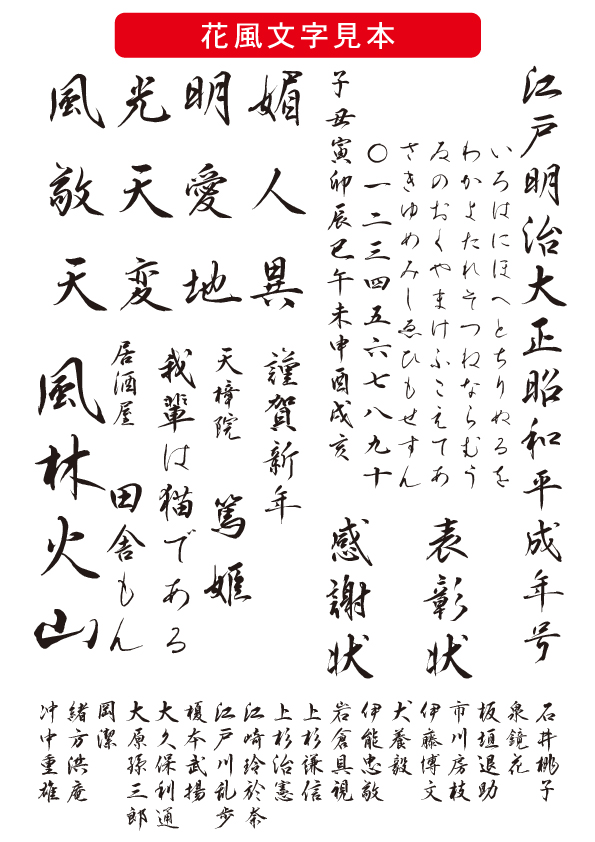 花風文字見本
江戸明治大正昭和平成年号
いろはにほへとちりぬるを
わかよたれそつねならむう
ゐのおくやまけふこえてあ
さきゆめみしゑひもせすん
〇一二三四五六七八九十
子丑寅卯辰巳午未申酉戌亥
表彰状
感謝状
媚人異
明愛地
光天変
風敬天
謹賀新年
天樟院
篤姫
我輩は猫である
居酒屋
田舎もん
風林火山
石井桃子
泉鏡花
板垣退助
市川房枝
伊藤博文
犬養毅
伊能忠敬
岩倉具視
上杉謙信
上杉治憲
江崎玲於奈
江戸川乱歩
榎本武揚
大久保利通
大原孫三郎
岡潔
緒方洪庵
沖中重雄